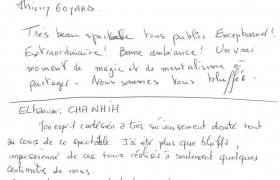 Thierry GOYARD
Très beau spectacle tous publics. Exceptionnel!
Extraordinaire! Bonne ambiance! Un vrai
moment de magie et de mentalisme à
partager - Nous sommes tous bluffés.
Elhaouari CHANHIH
Mon esprit cartésien a très sérieusement douté tout
au cours de ce spectacle. J'ai été plus que bluffé,
impressionné de ces tous réalisés à seulement quelques
centimètres de nous.